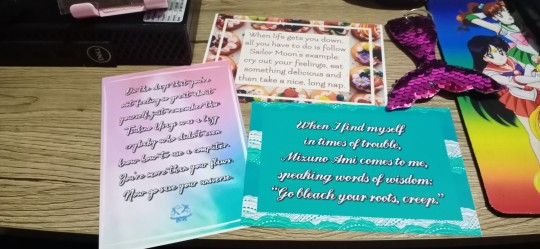 When life gets you down,
all you have to do is follow
Sailor Moon's example:
cry out your feelings, eat
something delicious and
then take a nice, long nap.
On the days that you're
not feeling so great about
yourself just remember that
Tsukino Usagi was a lazy
crybaby who didn't even
know how to use a computer.
You're more than your flaws.
Now go save your universe.
When I find myself
in times of trouble,
Mizuno Ami comes to me,
speaking words of wisdom:
"Go bleach your roots, creep."